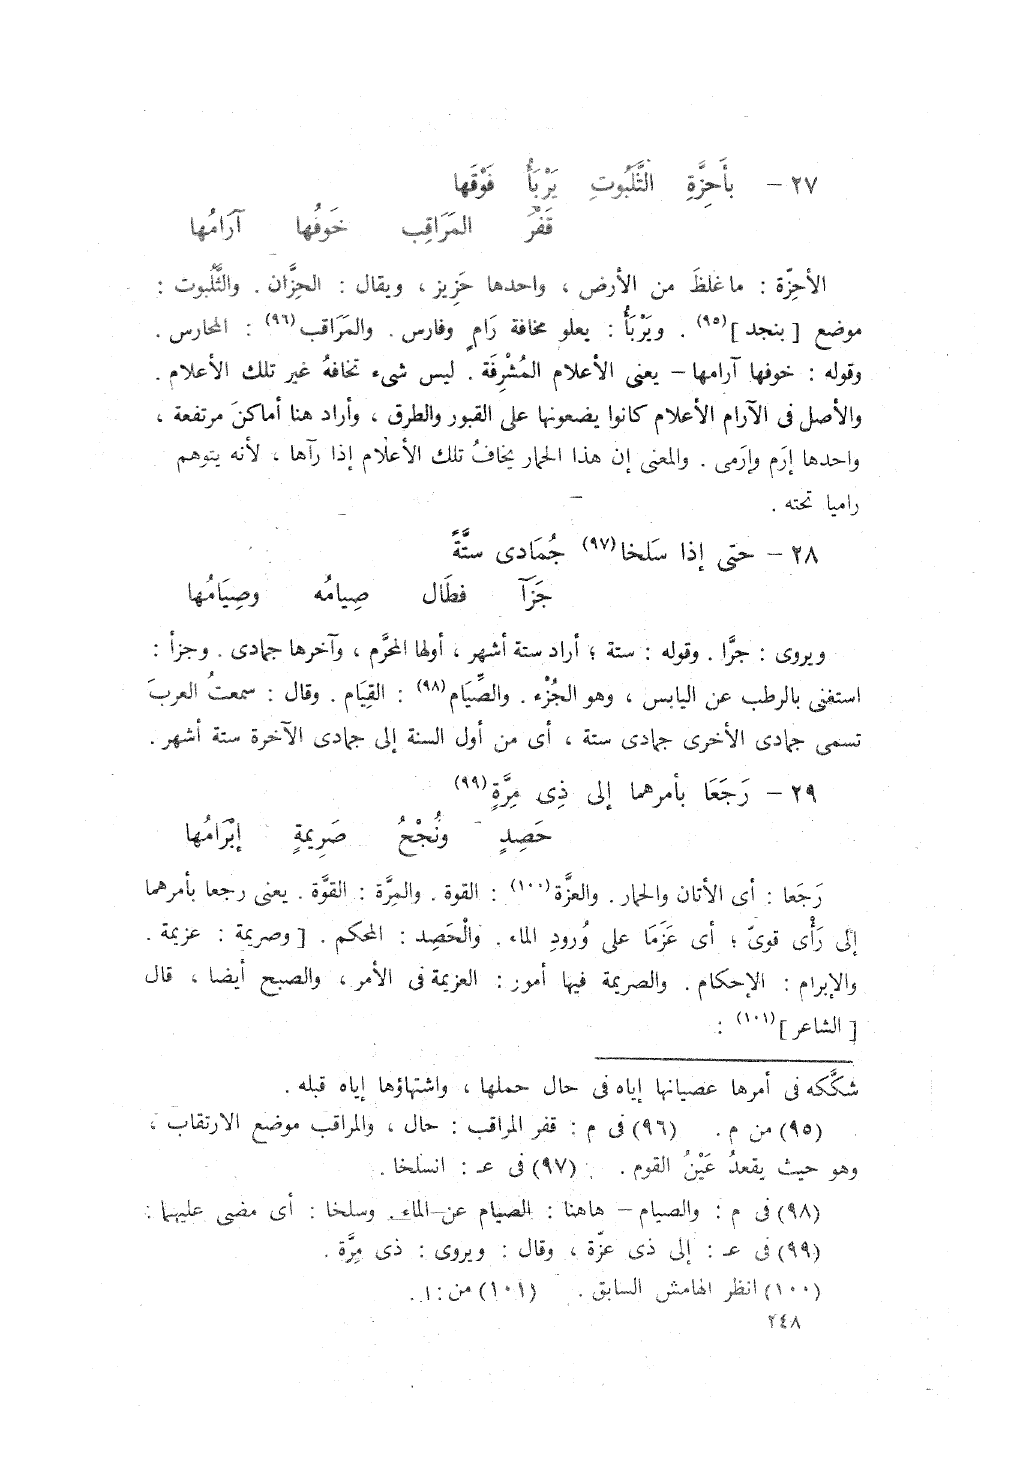 ٢٧ – بأَحِزَّةِ الثَّلَبُوتِ يَرْبَأُ فَوْقَها
قَفْرَ المَرَاقِبِ خَوفُها آرَامُها
الأحِزّة : ما غلظَ من الأرض ، واحدها حَزِيز ، ويقال : الحِزَّان . والثَّلَبوت :
موضع [ بنجد ](٩٥) . ويَرْبَأُ : يعلو مخافة رَامٍ وفارس . والمَرَاقب(٩٦) : المحارس .
وقوله : خوفها آرامها – يعنى الأعلام المُشْرِفَة . ليس شىء تخافهُ غير تلك الأعلام .
والأصل فى الآرام الأعلام كانوا يضعونها على القبور والطرق ، وأراد هنا أماكنَ مرتفعة ،
واحدها إرَم وإرَمى . والمعنى إن هذا الحمار يخافُ تلك الأعلام إذا رآها ، لأنه يتوهم
راميا تحته .
٢٨ – حتى إذا سَلخا(٩٧) جُمَادى ستَّةً
جَزَآ فطَال صِيامُه وصِيَامُها
ويروى : جرَّا . وقوله : ستة ؛ أراد ستة أشهر ، أولها المحرَّم ، وآخرها جمادى . وجزأ :
استغنى بالرطب عن اليابس ، وهو الجُزْء . والصِّيَام(٩٨) : القِيَام . وقال : سمعتُ العربَ
تسمى جمادى الأخرى جمادى ستة ، أى من أول السنة إلى جمادى الآخرة ستة أشهر .
٢٩ – رَجَعَا بأمرهما إلى ذِى مِرَّةٍ(٩٩)
حَصِدٍ ونُجْحُ صَرِيمةٍ إبْرَامُها
رَجَعا : أى الأتان والحمار . والعزَّة(١٠٠) : القوة . والمِرَّة : القوَّة . يعنى رجعا بأمرهما
إلى رَأْى قوىّ ؛ أى عَزَمَا على وُرودِ الماء . والْحَصِد : المحكم . [ وصريمة : عزيمة .
والإبرام : الإحكام . والصريمة فيها أمور : العزيمة فى الأمر ، والصبح أيضا ، قال
[ الشاعر ](١٠١) :
شكَّكه فى أمرها عصيانها إياه فى حال حملها ، واشتهاؤها إياه قبله .
(٩٥) من م . (٩٦) فى م : قفر المراقب : حال ، والمراقب موضع الارتقاب ،
وهو حيث يقعدُ عَيْنُ القوم . (٩٧) فى عـ : انسلخا .
(٩٨) فى م : والصيام – هاهنا : الصيام عن الماء . وسلخا : أى مضى عليهما .
(٩٩) فى عـ : إلى ذى عزّة ، وقال : ويروى : ذى مِرَّة .
(١٠٠) انظر الهامش السابق . (١٠١) من : ا .
٢٤٨